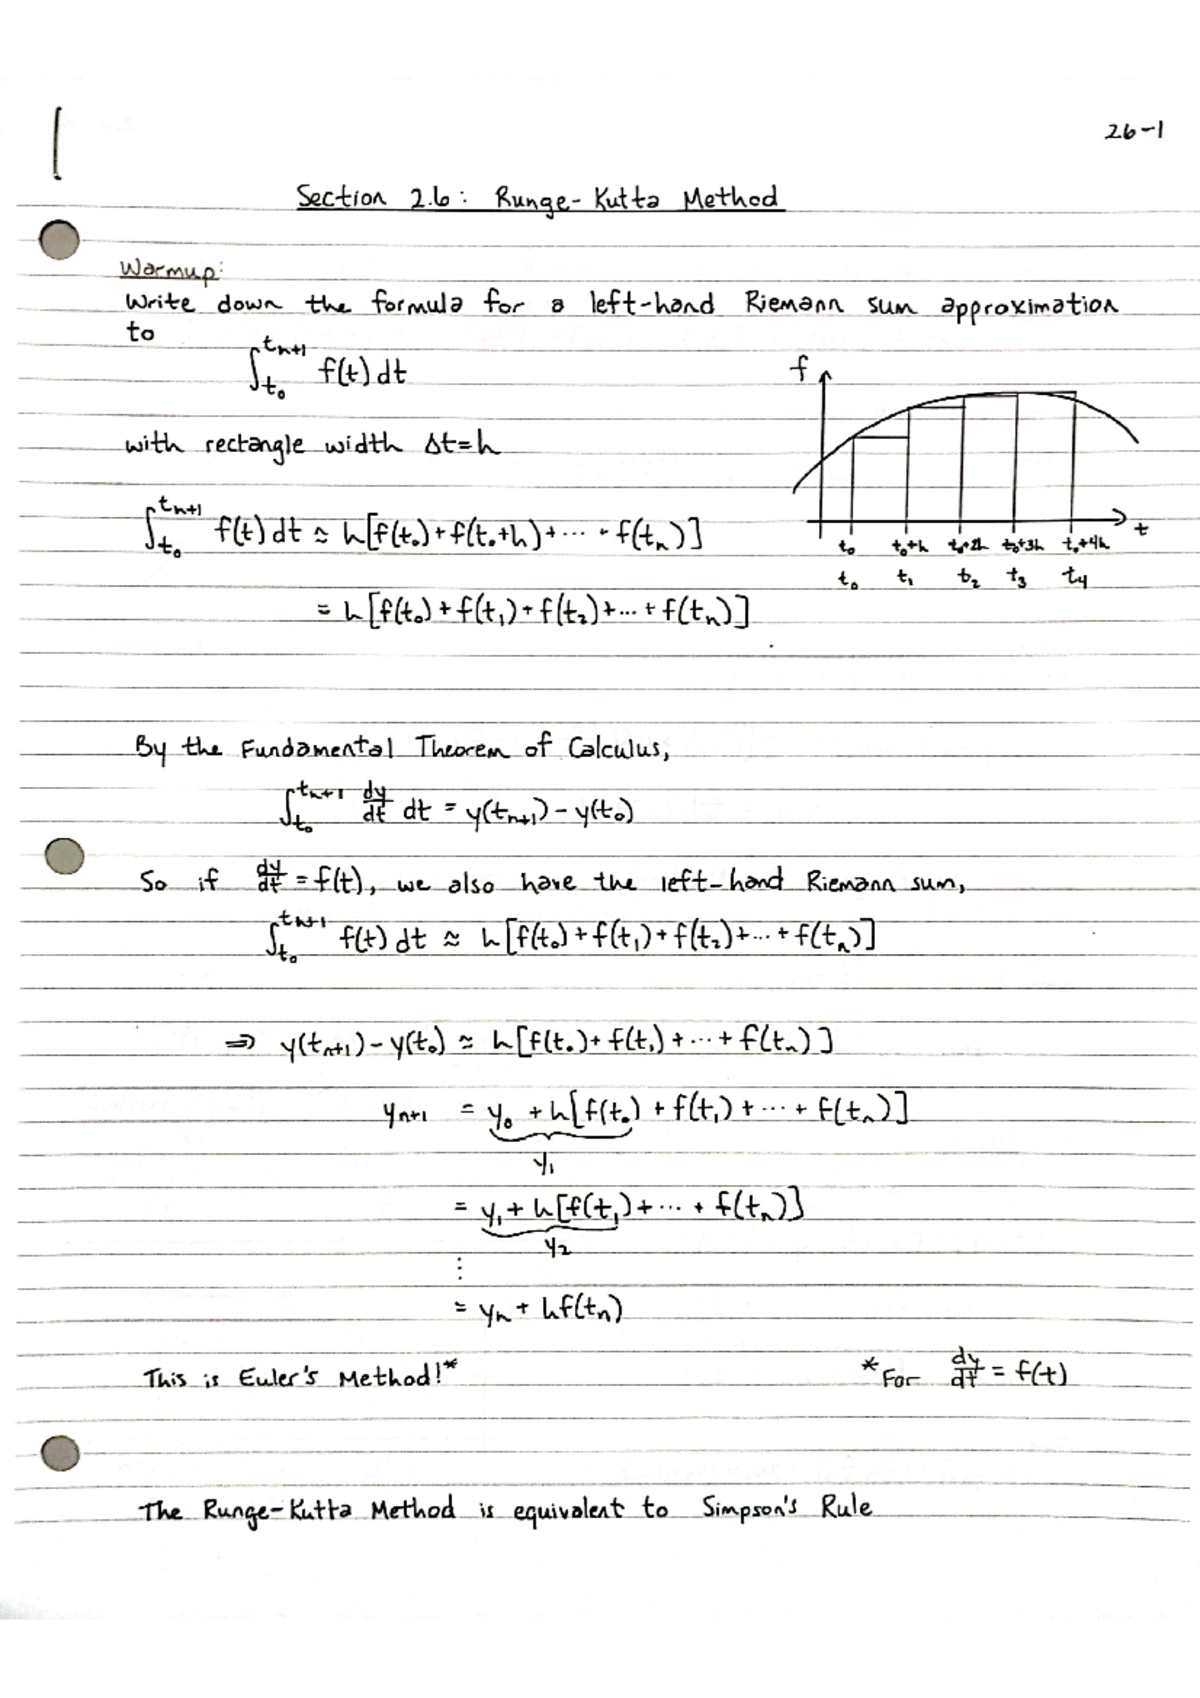 26-1
Section 2.6: Runge-Kutta Method
Warmup:
Write down the formula for a left-hand Riemann sum approximation
to
∫_{t₀}^{t_{n+1}} f(t) dt
f
with rectangle width Δt=h
∫_{t₀}^{t_{n+1}} f(t) dt ≈ h[f(t₀)+f(t₀+h)+⋯+f(t_n)]
t
t₀ t₀+h t₀+2h t₀+3h t₀+4h
t₀ t₁ t₂ t₃ t₄
= h[f(t₀)+f(t₁)+f(t₂)+...+f(t_n)]
By the Fundamental Theorem of Calculus,
∫_{t₀}^{t_{n+1}} dy/dt dt = y(t_{n+1})-y(t₀)
So if dy/dt = f(t), we also have the left-hand Riemann sum,
∫_{t₀}^{t_{n+1}} f(t) dt ≈ h[f(t₀)+f(t₁)+f(t₂)+...+f(t_n)]
⇒ y(t_{n+1})-y(t₀) ≈ h[f(t₀)+f(t₁)+⋯+f(t_n)]
y_{n+1} = y₀ + h[f(t₀)+f(t₁)+⋯+f(t_n)]
y₁
= y₁ + h[f(t₁)+⋯+f(t_n)]
y₂
⋮
= y_n + hf(t_n)
This is Euler's Method!* *For dy/dt = f(t)
The Runge-Kutta Method is equivalent to Simpson's Rule